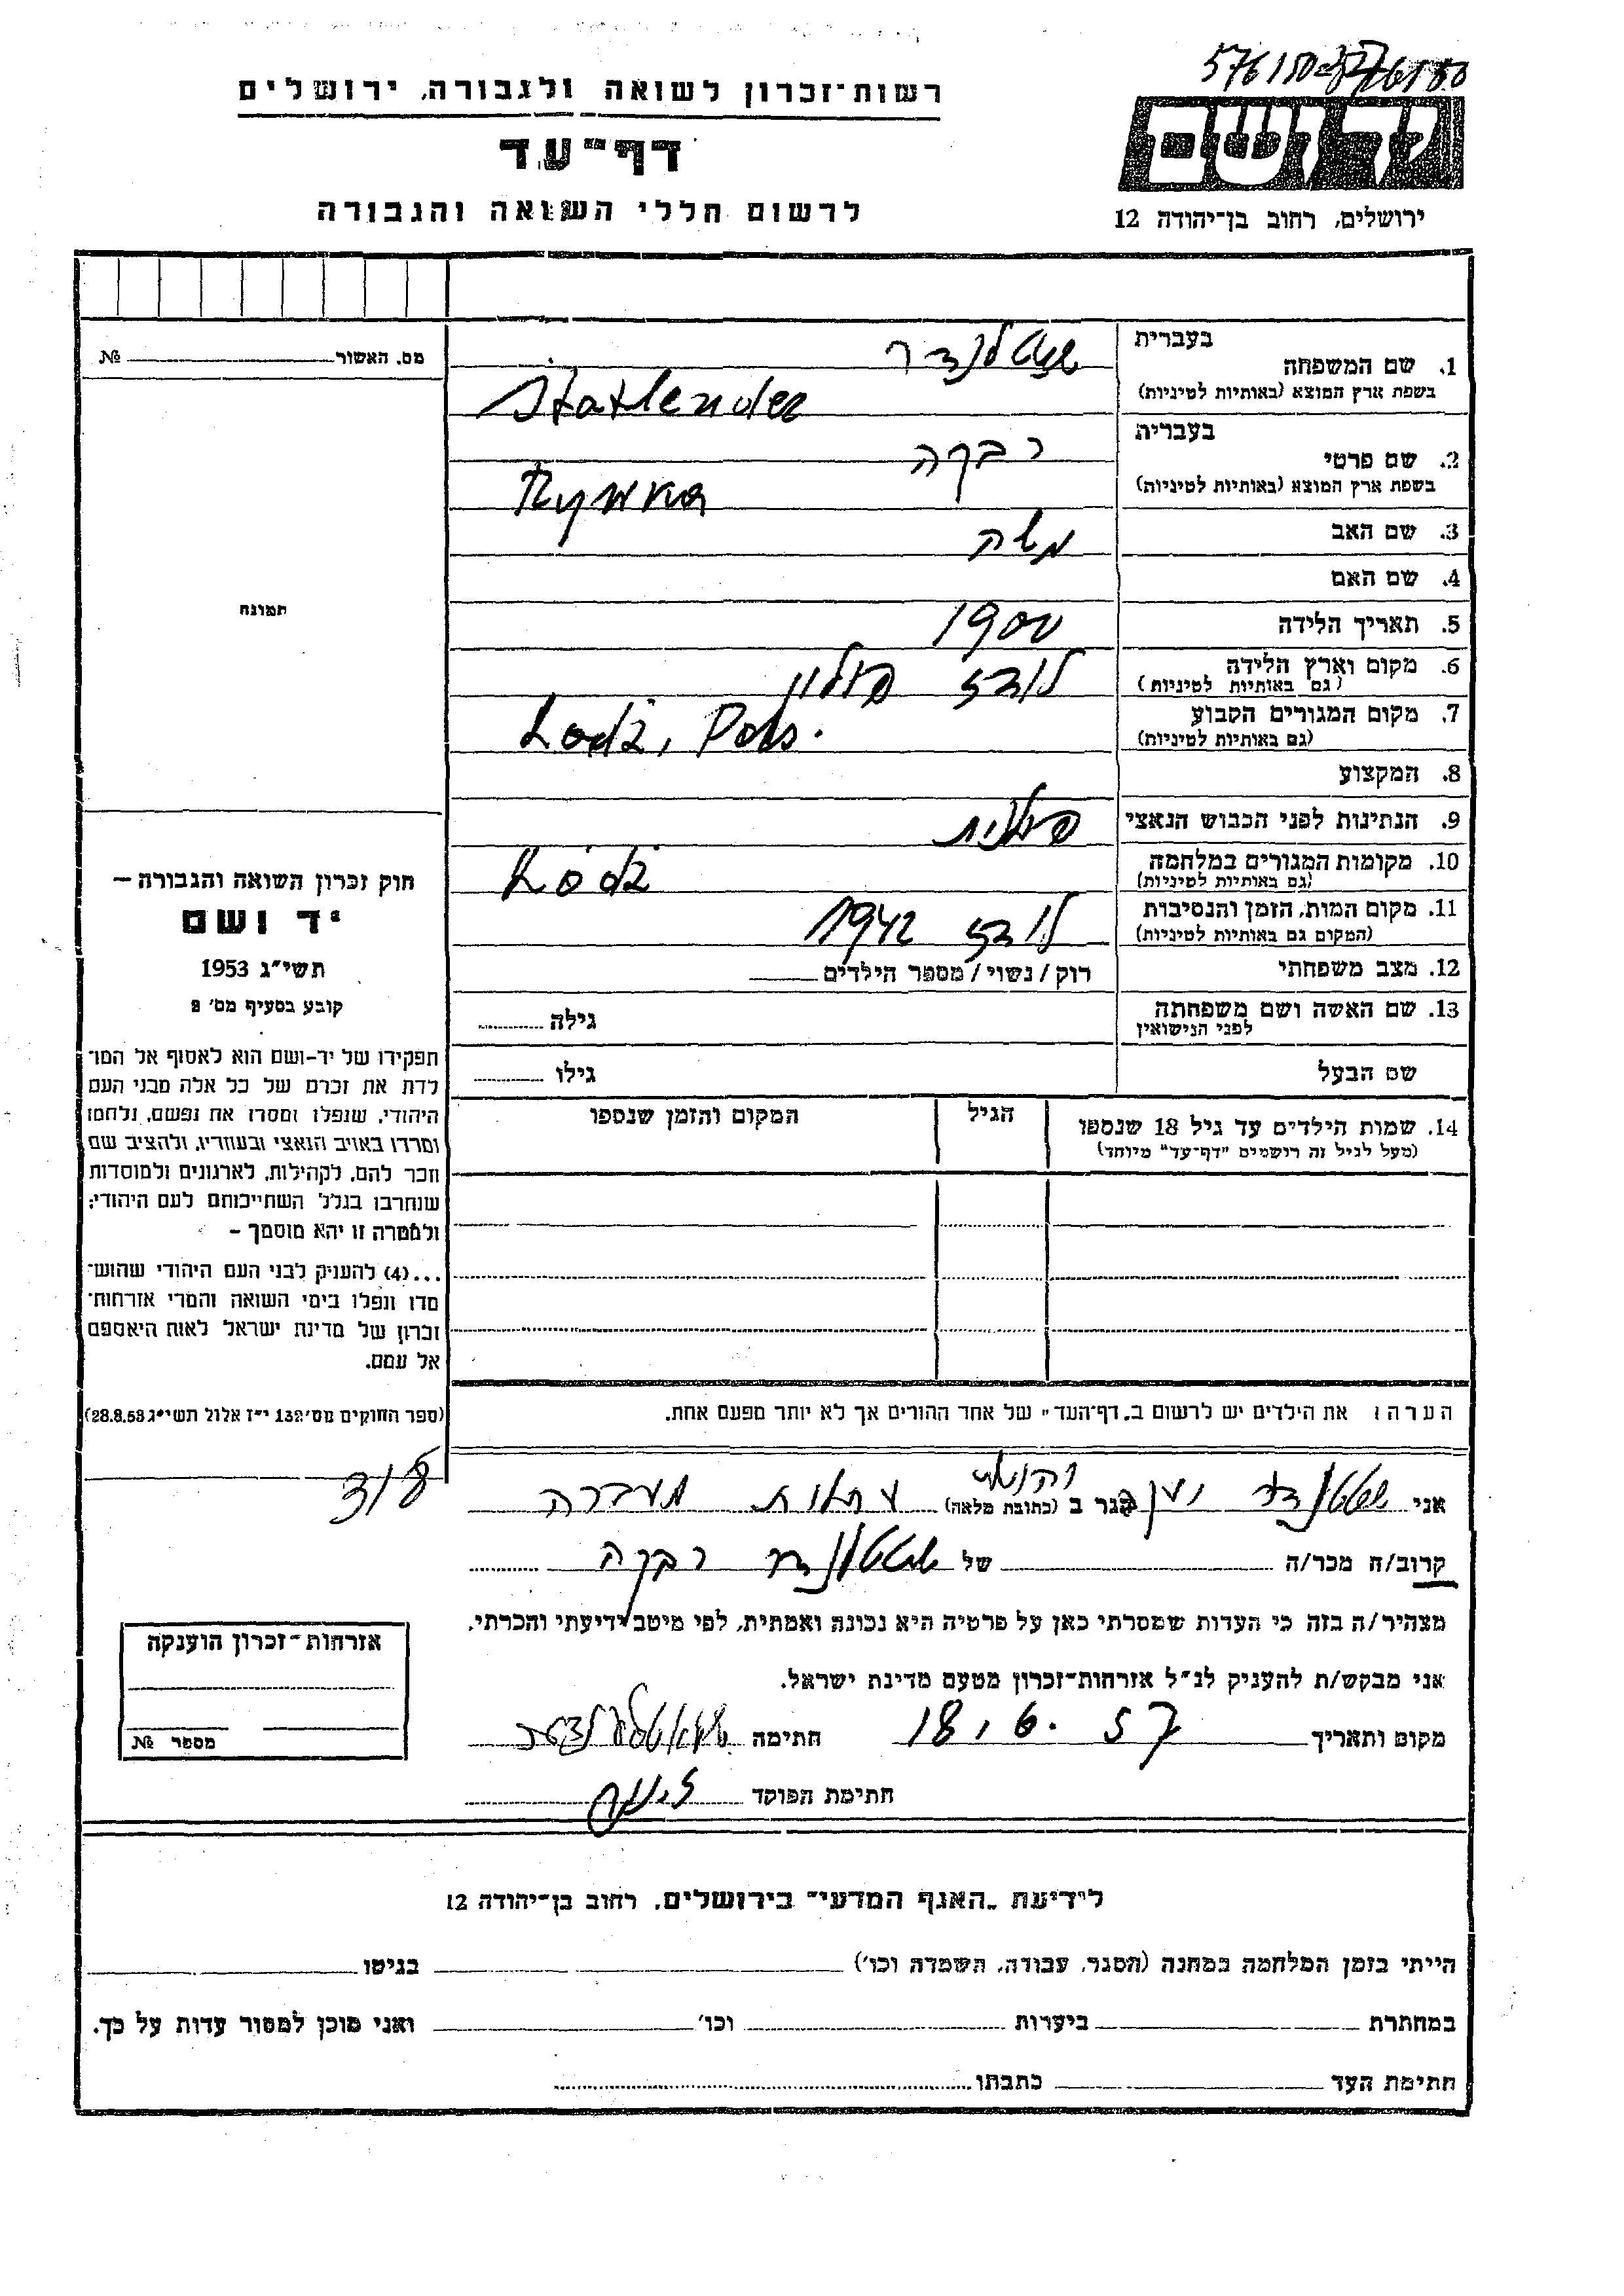 רשות־זכרון לשואה ולגבורה, ירושלים
דף־עד
לרשום חללי השואה והגבורה
ירושלים, רחוב בן־יהודה 12
מס. האשור № 
1. שם המשפחה בעברית שטטלנדר
בשפת ארץ המוצא (באותיות לטיניות) Statlender
2. שם פרטי בעברית רבקה
בשפת ארץ המוצא (באותיות לטיניות) Rywka
3. שם האב משה
4. שם האם
5. תאריך הלידה 1900
6. מקום וארץ הלידה לודז פולין
(גם באותיות לטיניות)
7. מקום המגורים הקבוע Lodz, Pols.
(גם באותיות לטיניות)
8. המקצוע
9. הנתינות לפני הכבוש הנאצי פולנית
10. מקומות המגורים במלחמה Lodz
(גם באותיות לטיניות)
11. מקום המות, הזמן והנסיבות לודז 1942
(המקום גם באותיות לטיניות)
12. מצב משפחתי רוק / נשוי / מספר הילדים
13. שם האשה ושם משפחתה גילה
לפני הנישואין
שם הבעל גילו
14. שמות הילדים עד גיל 18 שנספו הגיל המקום והזמן שנספו
(מעל לגיל זה רושמים "דף־עד" מיוחד)
תמונה
חוק זכרון השואה והגבורה —
יד ושם
תשי״ג 1953
קובע בסעיף מס׳ 2
תפקידו של יד-ושם הוא לאסוף אל המו־
לדת את זכרם של כל אלה מבני העם
היהודי, שנפלו ומסרו את נפשם, נלחמו
ומרדו באויב הנאצי ובעוזריו, ולהציב שם
וזכר להם, לקהילות, לארגונים ולמוסדות
שנחרבו בגלל השתייכותם לעם היהודי;
ולמטרה זו יהא מוסמך —
...(4) להעניק לבני העם היהודי שהוש־
מדו ונפלו בימי השואה והמרי אזרחות־
זכרון של מדינת ישראל לאות היאספם
אל עמם.
(ספר החוקים מס׳ 132 י״ז אלול תשי״ג 28.8.53)
הערה: את הילדים יש לרשום ב„דף־העד״ של אחד ההורים אך לא יותר מפעם אחת.
אני שטטלנדר הגר ב (כתובת מלאה) מעברה
קרוב/ה מכר/ה של שטטלנדר רבקה
מצהיר/ה בזה כי העדות שמסרתי כאן על פרטיה היא נכונה ואמתית, לפי מיטב ידיעתי והכרתי.
אני מבקש/ת להעניק לנ״ל אזרחות־זכרון מטעם מדינת ישראל.
מקום ותאריך 18.6.57 חתימה
חתימת הפוקד
אזרחות־זכרון הוענקה
מספר №
לידיעת „האגף המדעי״ בירושלים, רחוב בן־יהודה 12
הייתי בזמן המלחמה במחנה (הסגר, עבודה, השמדה וכו׳) בגיטו
במחתרת ביערות וכו׳ ואני מוכן למסור עדות על כך.
חתימת העד כתבתו